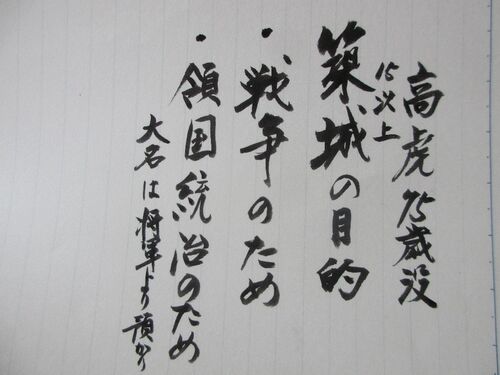 高虎75歳没
15次上
築城の目的
・戦争のため
・領国統治のため
大名は将軍より預かり